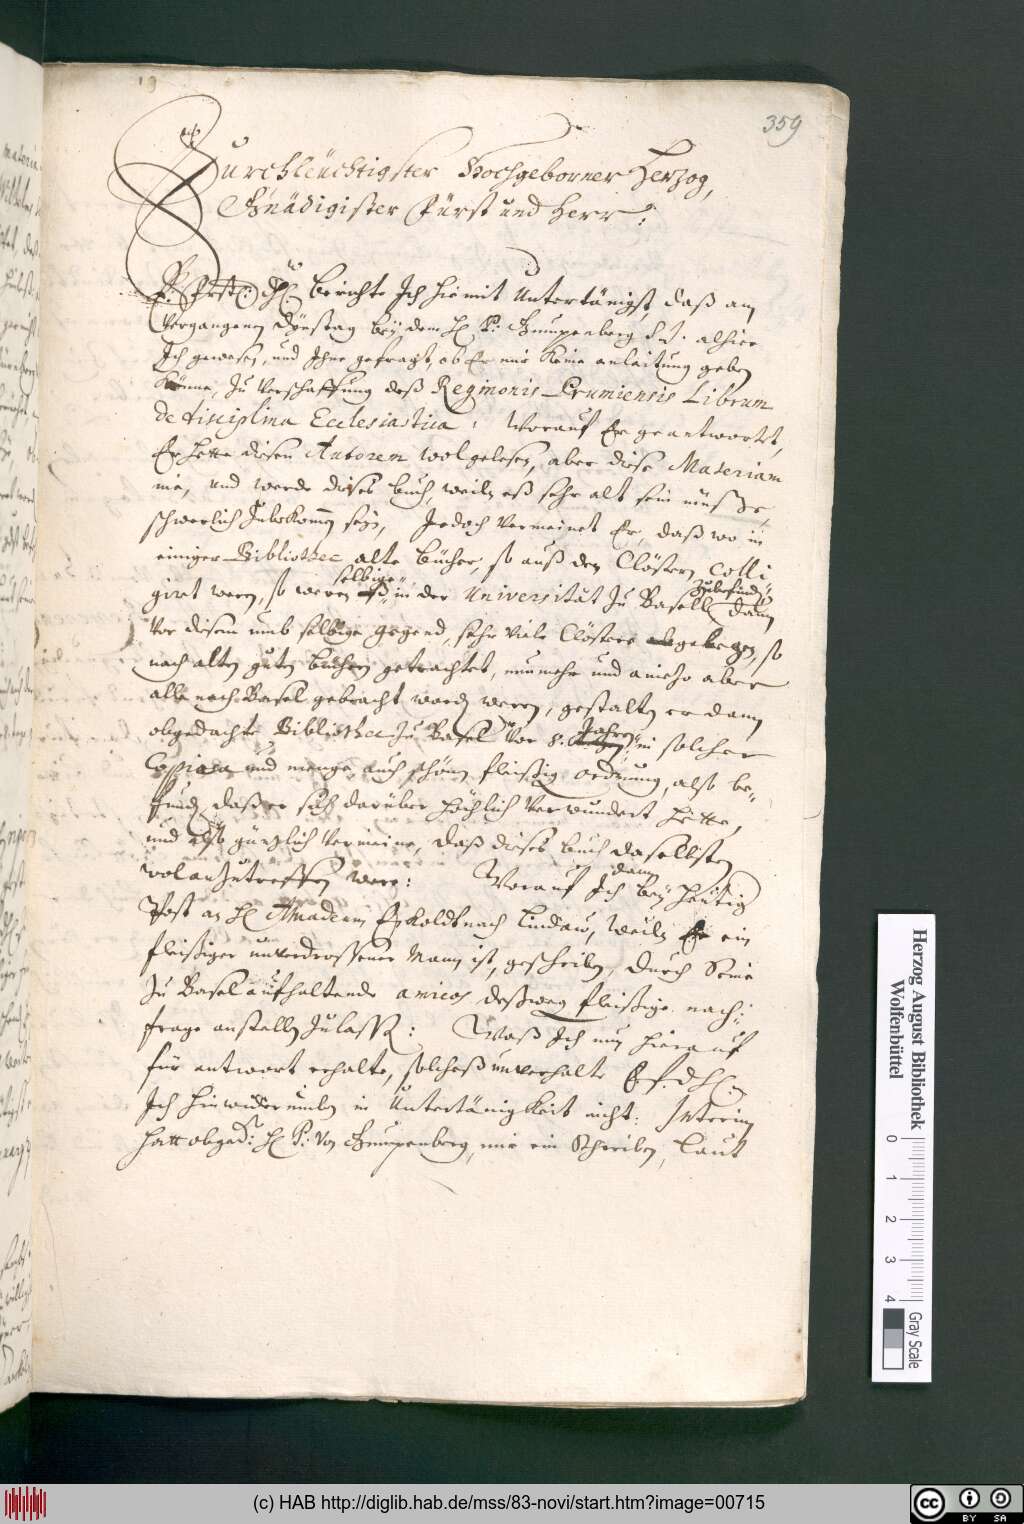 359
Durchleüchtigster Hochgeborner Herzog,
Gnädigister Fürst und Herr:
E. Frstl: Dhl: berichte Ich hiemit Untertänigst, daß am
Vergangenen Dynstag bey dem H P: Gumpenberg S. J. alhier
Ich gewesen, und Ihne gefragt, ob Er mir keine anleitung geben
könne, zu Verschaffung deß Reginonis Prumiensis Librum
de disciplina Ecclesiastica: Worauf Er geantwortet,
Er hette diesen Autorem wol gelesen, aber diese Materiam
nie, und werde dises buch, weiln eß sehr alt sein müesste,
schwerlich zubekommen seyn, Jedoch Vermeinet Er, daß wo in
einiger Bibliothec alte bücher, so auß den Clöstern colli
girt weren, so weren selbige in der Universität zu Basell zubefinden, dann
Vor diesem umb selbige gegend, sehr viele Clöstere abgelegen, so
nach alten guten büchern getrachtet, nunmehr und aniezo aber
alle nach Basel gebracht worden weren, gestalten er dann
obgedachte Bibliothec zu Basel Vor 8. Jahren in solcher
Copiosa und menge, auch schönen fleissigen ordnung, also be-
funden, daß er sich darüber höchlich Verwundert hette,
und also gänzlich Vermeine, daß dieses buch daselbsten
wol anzutreffen were: Worauf Ich dann bey heutiger
Post an H Amadeum Eckoldt nach Lindaw, weiln Er ein
fleißiger unverdrossener Mann ist, geschriben, durch Seine
zu Basel aufhaltende amicos deßweg fleißige nach-
frage anstellen zulassen: Waß Ich nun hierauf
für antwort erhalte, solcheß unverhalte E. f. Dhl:
Ich hinwiderumben in Untertänigkeit nicht: Interim
hatt obged: H P: Von Gumpenberg, mir ein Schreiben, laut
Herzog August Bibliothek
Wolfenbüttel
0 1 2 3 4
Gray Scale
(c) HAB http://diglib.hab.de/mss/83-novi/start.htm?image=00715
cc BY SA